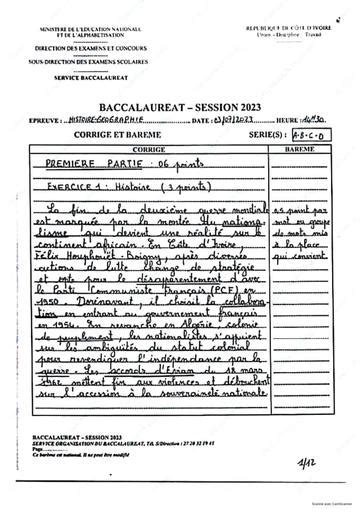 MINISTERE DE L'EDUCATION NATIONALE
ET DE L'ALPHABETISATION
DIRECTION DES EXAMENS ET CONCOURS
SOUS-DIRECTION DES EXAMENS SCOLAIRES
SERVICE BACCALAUREAT
REPUBLIQUE DE CÔTE D'IVOIRE
Union - Discipline - Travail
BACCALAUREAT – SESSION 2023
EPREUVE : HISTOIRE-GEOGRAPHIE DATE : 03/07/2023 HEURE : 14H30
CORRIGE ET BAREME SERIE(S) : A-B-C-D
CORRIGE BAREME
PREMIERE PARTIE : 06 points
EXERCICE 1 : Histoire (3 points)
La fin de la deuxième guerre mondiale
est marquée par la montée du natio-
lisme qui devient une réalité sur le
continent africain. En Côte d'Ivoire,
Félix Houphouët-Boigny, après diverses
actions de lutte change de stratégie
et opte pour le désapparentement d'avec
le Parti Communiste Français (PCF) en
1950. Dorénavant, il choisit la collabora-
tion en entrant au gouvernement français
en 1954. En revanche en Algérie, colonie
de peuplement, les nationalistes s'appuient
sur les ambiguïtés du statut colonial
pour revendiquer l'indépendance par la
guerre. Les accords d'Evian du 18 mars
1962 mettent fin aux violences et débouchent
sur l'accession à la souveraineté nationale
0,5 point par
mot ou groupe
de mots mis
à la place
qui convient.
BACCALAUREAT – SESSION 2023
SERVICE ORGANISATION DU BACCALAUREAT, Tél. S/Direction : 27 20 32 19 45
Page
Ce barème est national. Il ne peut être modifié
1/12
Scanné avec CamScanner